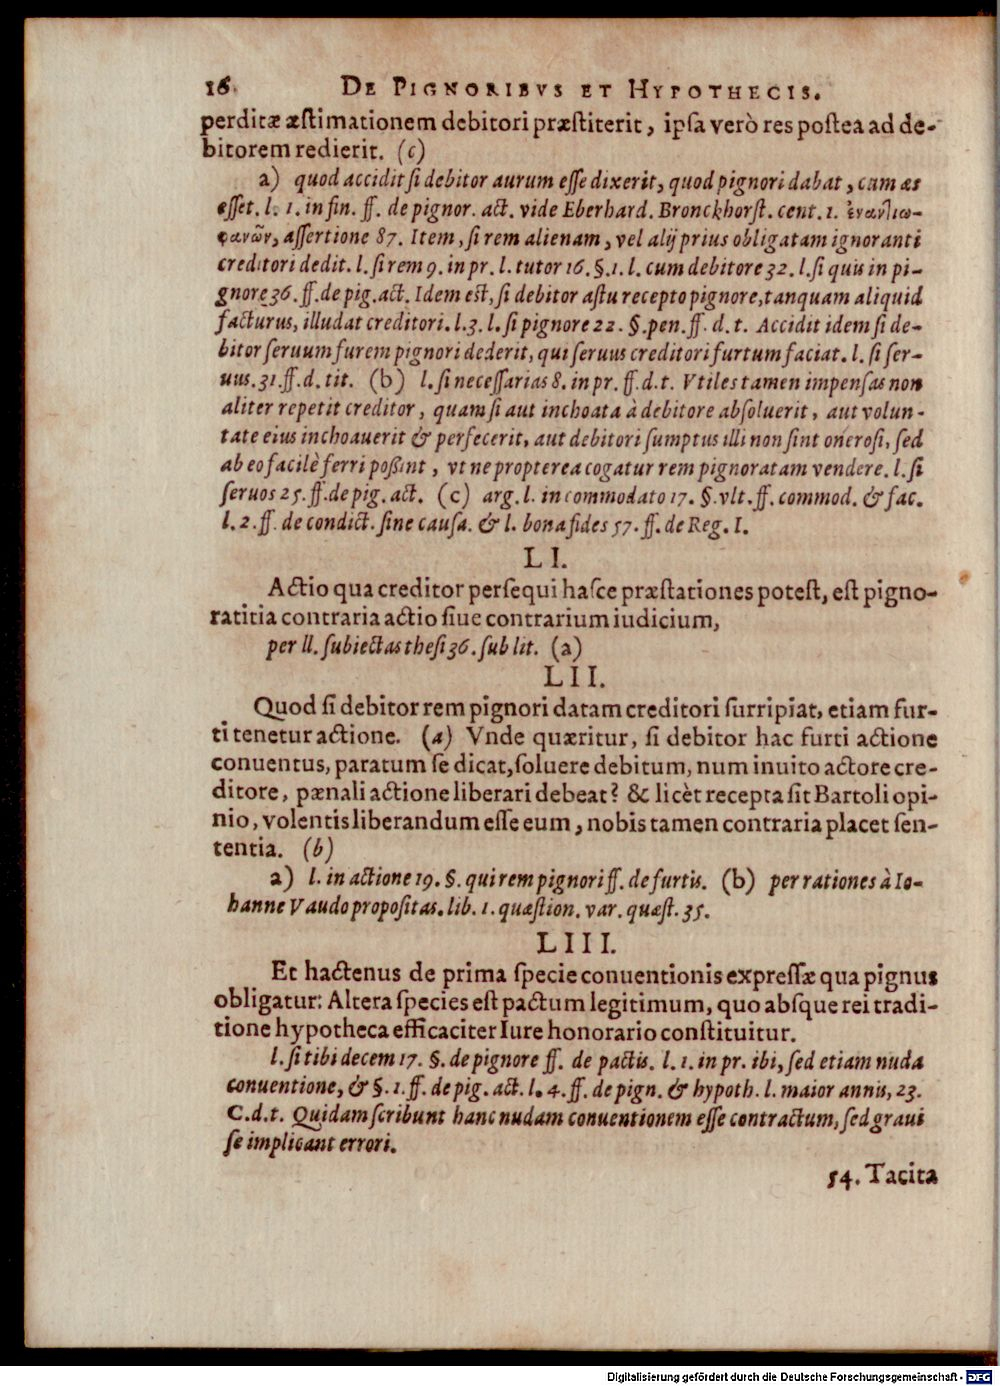 16 DE PIGNORIBVS ET HYPOTHECIS.
perditæ æstimationem debitori præstiterit, ipsa verò res postea ad de-
bitorem redierit. (c)
a) quod accidit si debitor aurum esse dixerit, quod pignori dabat, cum æs
esset. l. 1. in fin. ff. de pignor. act. vide Eberhard. Bronckhorst. cent. 1. ἐναντιο-
φανῶν, assertione 87. Item, si rem alienam, vel alij prius obligatam ignoranti
creditori dedit. l. si rem 9. in pr. l. tutor 16. §. 1. l. cum debitore 32. l. si quis in pi-
gnore 36. ff. de pig. act. Idem est, si debitor astu recepto pignore, tanquam aliquid
facturus, illudat creditori. l. 3. l. si pignore 22. §. pen. ff. d. t. Accidit idem si de-
bitor seruum furem pignori dederit, qui seruus creditori furtum faciat. l. si ser-
uus. 31. ff. d. tit. (b) l. si necessarias 8. in pr. ff. d. t. Vtiles tamen impensas non
aliter repetit creditor, quam si aut inchoata à debitore absoluerit, aut volun-
tate eius inchoauerit & perfecerit, aut debitori sumptus illi non sint onerosi, sed
ab eo facilè ferri possint, vt ne propterea cogatur rem pignoratam vendere. l. si
seruos 25. ff. de pig. act. (c) arg. l. in commodato 17. §. vlt. ff. commod. & fac.
l. 2. ff. de condict. sine causa. & l. bona fides 57. ff. de Reg. I.
LI.
Actio qua creditor persequi hasce præstationes potest, est pigno-
ratitia contraria actio siue contrarium iudicium,
per ll. subiectas thesi 36. sub lit. (a)
LII.
Quod si debitor rem pignori datam creditori surripiat, etiam fur-
ti tenetur actione. (a) Vnde quæritur, si debitor hac furti actione
conuentus, paratum se dicat, soluere debitum, num inuito actore cre-
ditore, pænali actione liberari debeat? & licèt recepta sit Bartoli opi-
nio, volentis liberandum esse eum, nobis tamen contraria placet sen-
tentia. (b)
a) l. in actione 19. §. qui rem pignori ff. de furtis. (b) per rationes à Io-
hanne Vaudo propositas. lib. 1. quæstion. var. quæst. 35.
LIII.
Et hactenus de prima specie conuentionis expressæ qua pignus
obligatur: Altera species est pactum legitimum, quo absque rei tradi-
tione hypotheca efficaciter Iure honorario constituitur.
l. si tibi decem 17. §. de pignore ff. de pactis. l. 1. in pr. ibi, sed etiam nuda
conuentione, & §. 1. ff. de pig. act. l. 4. ff. de pign. & hypoth. l. maior annis, 23.
C. d. t. Quidam scribunt hanc nudam conuentionem esse contractum, sed graui
se implicant errori.
54. Tacita
Digitalisierung gefördert durch die Deutsche Forschungsgemeinschaft - DFG